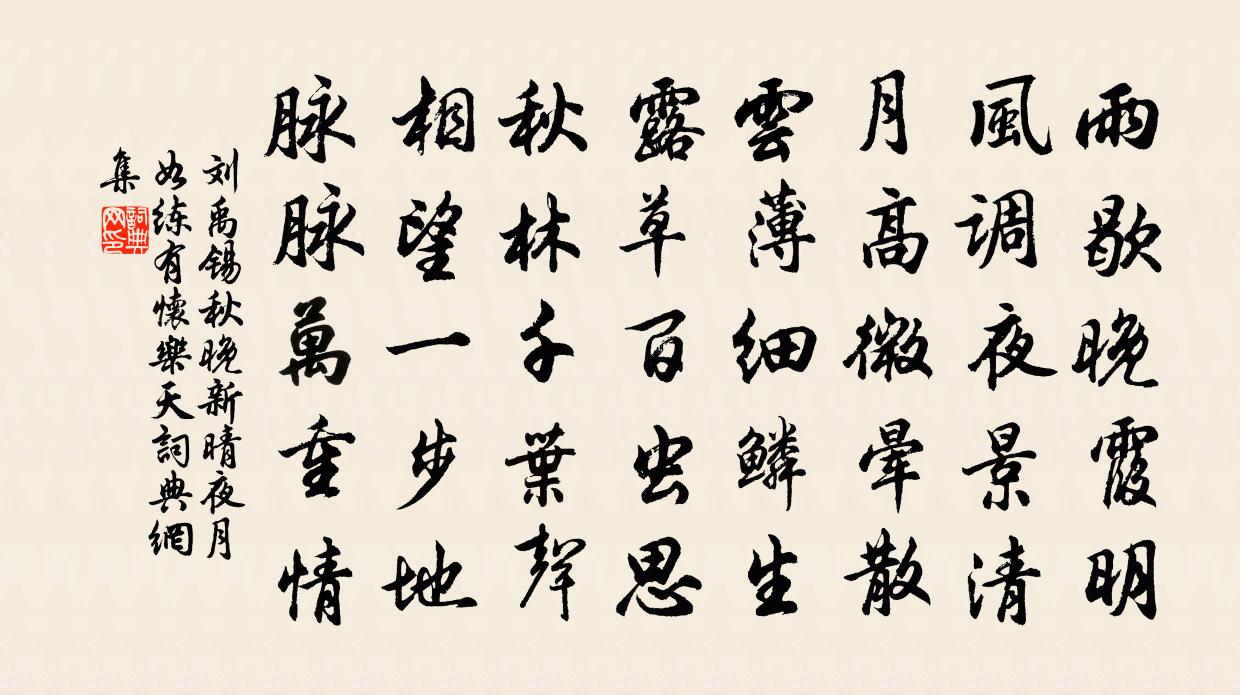 雨歇晚霞明
風调夜景清
月高微暈散
雲薄细鱗生
露草百虫思
秋林千葉聲
相望一步地
脉脉萬重情
刘禹锡秋晚新晴夜月
如练有懷樂天詞典網
集
詞典
网印